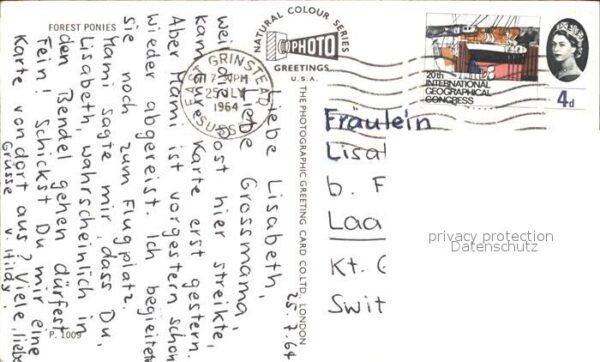 FOREST PONIES
NATURAL COLOUR SERIES
PHOTO
GREETINGS
U.S.A.
EAST GRINSTEAD
7-PM
25 JLY
1964
SUSSEX
20th
INTERNATIONAL
GEOGRAPHICAL
CONGRESS
4d
THE PHOTOGRAPHIC GREETING CARD CO LTD., LONDON
25.7.64
Liebe Lisabeth,
liebe Grossmama,
weil die Post hier streikte,
kam Eure Karte erst gestern.
Aber Mami ist vorgestern schon
wieder abgereist. Ich begleitete
sie noch zum Flugplatz.
Mami sagte mir, dass Du,
Lisabeth, wahrscheinlich in
den Bendel gehen dürfest.
Fein! Schickst Du mir eine
Karte von dort aus? Viele, liebe
Grüsse v. Hildy.
P. 1009
Fräulein
Lisa
b. F
Laa
Kt.
Swit
privacy protection
Datenschutz